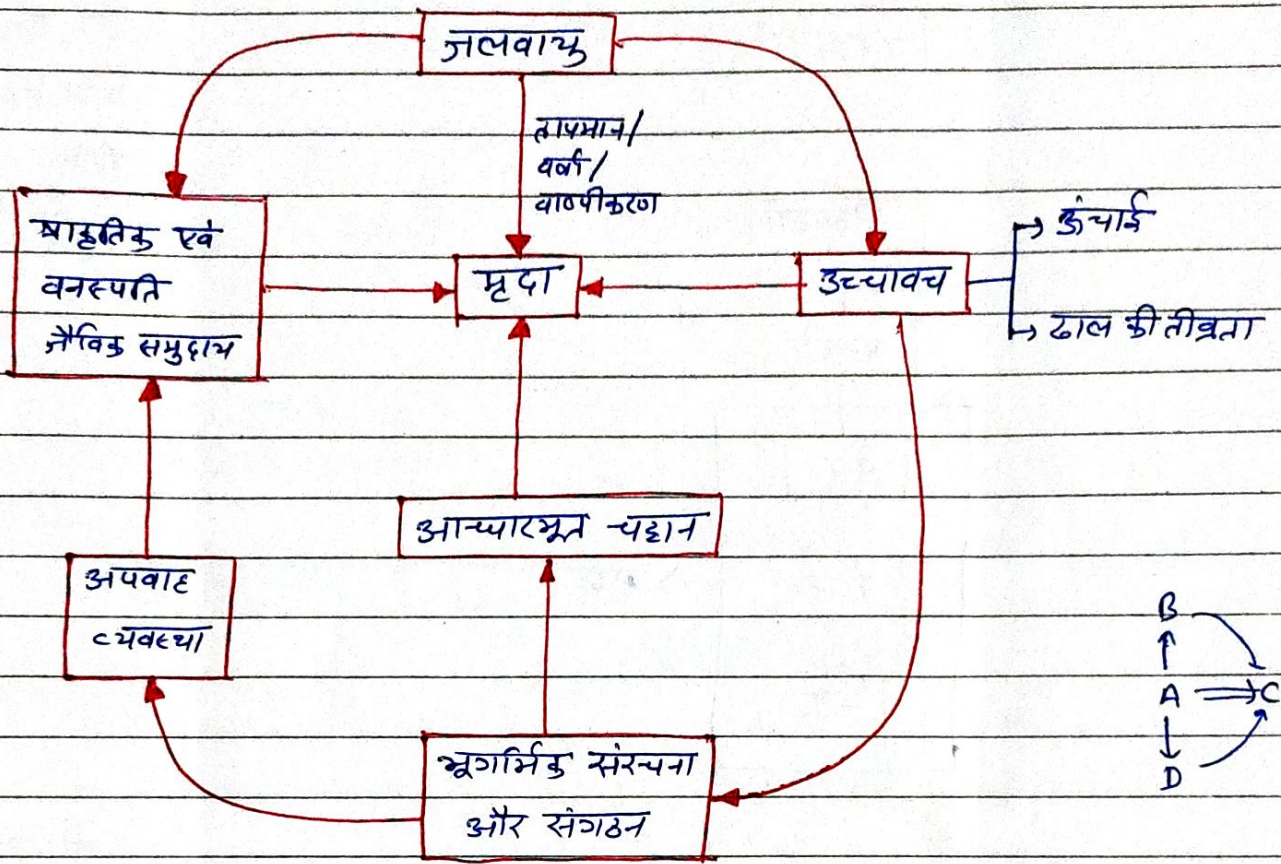 जलवायु
तापमान/
वर्षा/
वाष्पीकरण
प्राकृतिक एवं
वनस्पति
जैविक समुदाय
मृदा
उच्चावच
→ ऊंचाई
→ ढाल की तीव्रता
आधारभूत चट्टान
अपवाह
व्यवस्था
B
A ⇒ C
D
भूगर्भिक संरचना
और संगठन